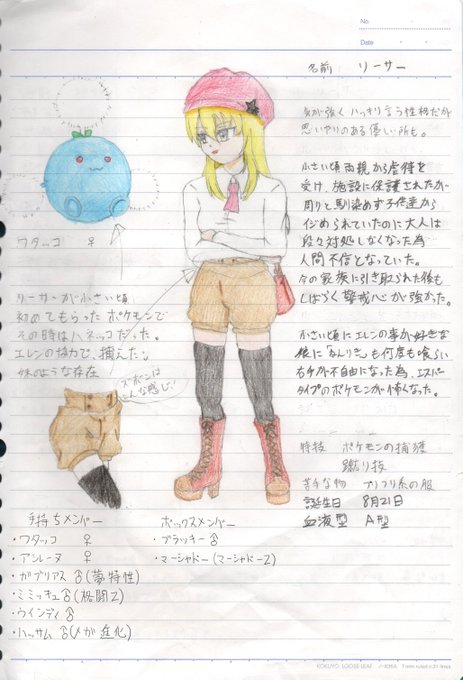 No.
Date
名前 リーサー
気が強く ハッキリ言う性格だが
思いやりのある優しい所も。
小さい頃 両親から虐待を
受け、施設に保護されたが
周りと馴染めず子供達から
イジめられていたのに大人は
段々対処しなくなった為
人間不信となっていた。
今の家族に引き取られた後も
しばらく警戒心が強かった。
小さい頃にエレンの事が好きな
娘に「ねんりき」も何度も喰らい
右半身不自由になった為、エスパー
タイプのポケモンが怖くなった。
特技 ポケモンの捕獲
蹴り技
苦手な物 フリフリ系の服
誕生日 8月21日
血液型 A型
ワタッコ ♀
リーサーが小さい頃
初めてもらったポケモンで
その時はハネッコだった。
エレンの協力で、捕えた。
妹のような存在
ズボンは
こんな感じ!
手持ちメンバー
・ワタッコ ♀
・アシレーヌ ♀
・ガブリアス ♂(夢特性)
・ミミッキュ ♂(格闘Z)
・ウインディ ♂
・ハッサム ♂(メガ進化)
ボックスメンバー
・ブラッキー ♂
・マーシャドー(マーシャドーZ)
KOKUYO LOOSE-LEAF